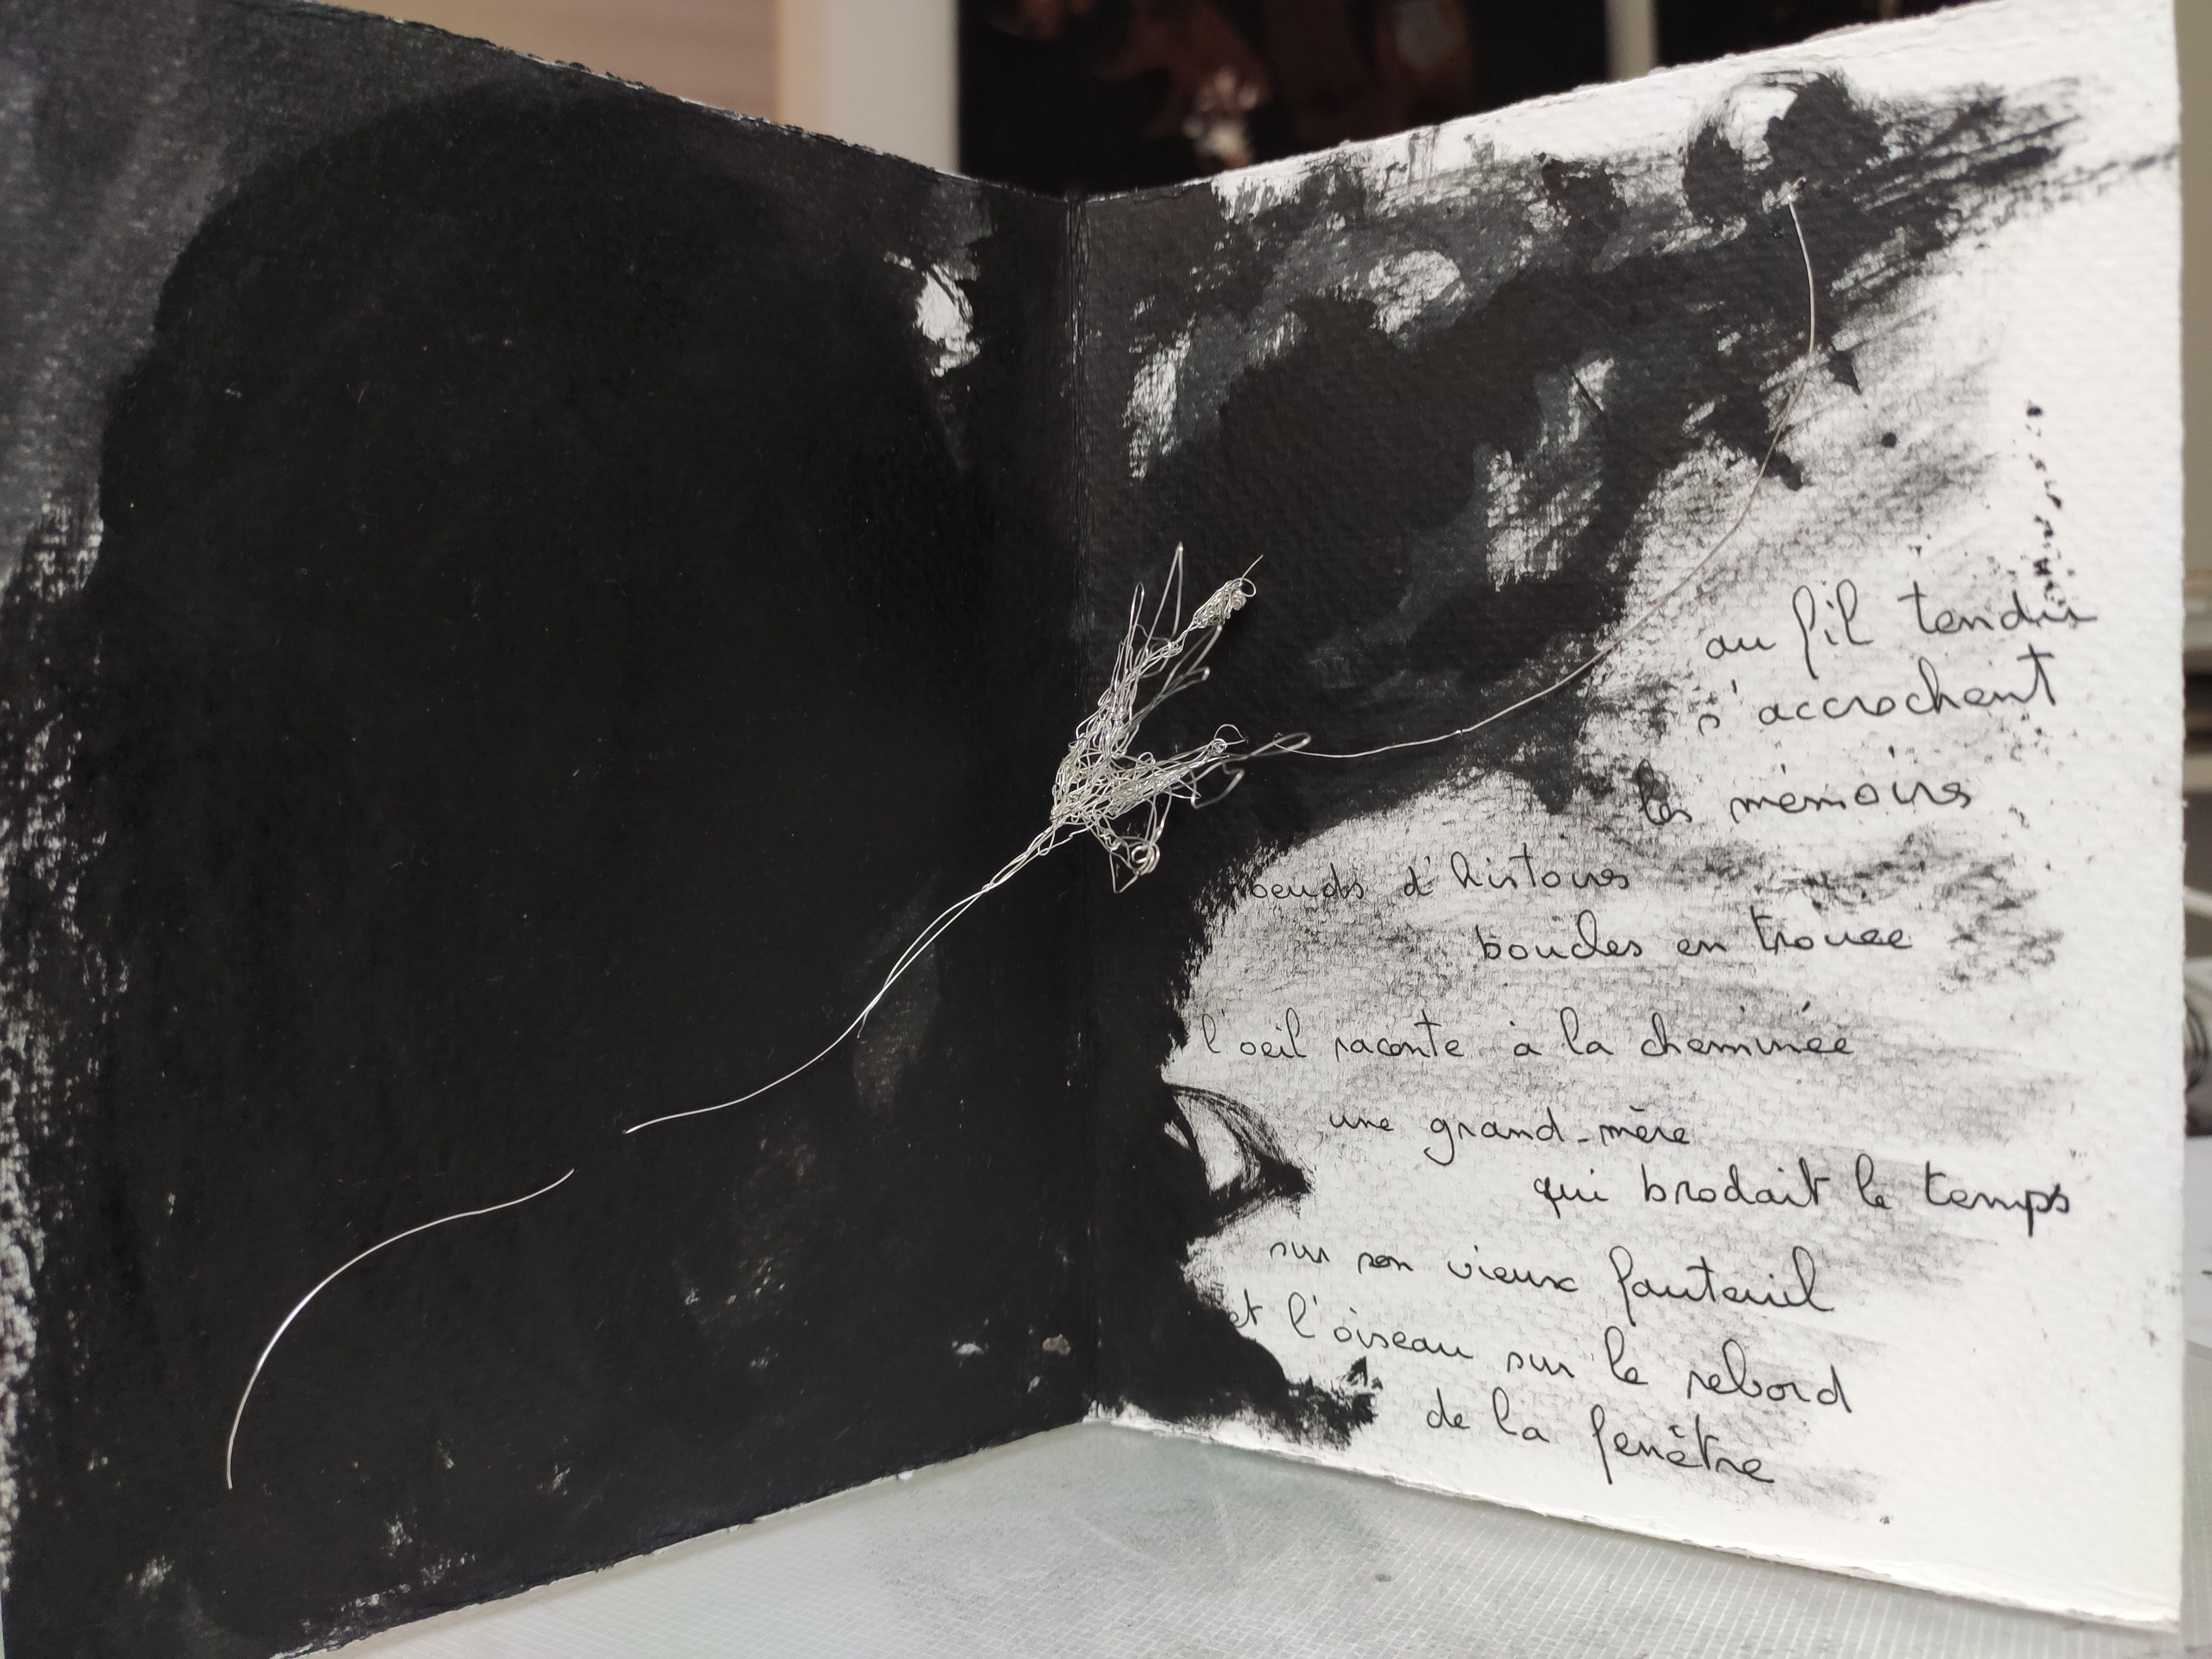 au fil tendu
s'accrochent
les mémoires
noeuds d'histoires
boucles en trouée
l'oeil raconte à la cheminée
une grand-mère
qui brodait le temps
sur son vieux fauteuil
et l'oiseau sur le rebord
de la fenêtre